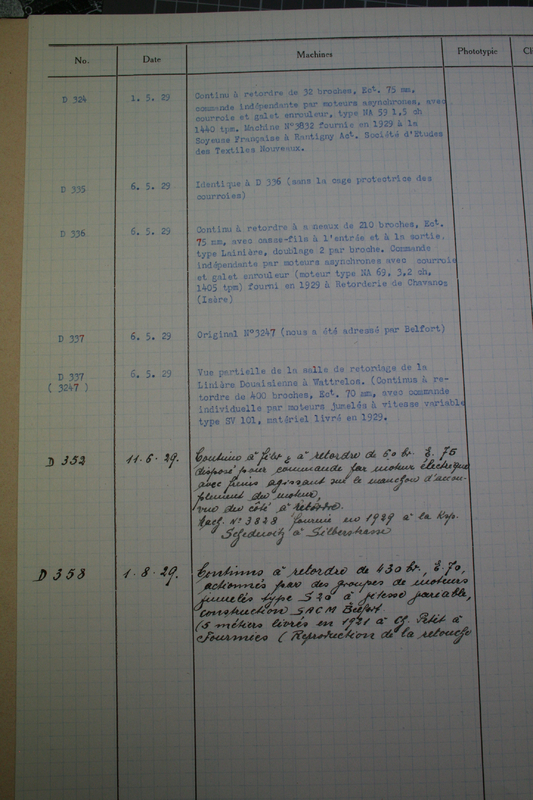 No. Date Machines Phototypie Cl
D 324 1. 5. 29 Continu à retordre de 32 broches, Ect. 75 mm,
commande indépendante par moteurs asynchrones, avec
courroie et galet enrouleur, type NA 59 1,5 ch
1440 tpm. Machine N°3832 fournie en 1929 à la
Soyeuse Française à Rantigny Act. Société d'Etudes
des Textiles Nouveaux.
D 335 6. 5. 29 Identique à D 336 (sans la cage protectrice des
courroies)
D 336 6. 5. 29 Continu à retordre à a neaux de 210 broches, Ect.
75 mm, avec casse-fils à l'entrée et à la sortie,
type Lainière, doublage 2 par broche. Commande
indépendante par moteurs asynchrones avec courroie
et galet enrouleur (moteur type NA 69, 3,2 ch,
1405 tpm) fourni en 1929 à Retorderie de Chavanoz
(Isère)
D 337 6. 5. 29 Original N°3247 (nous a été adressé par Belfort)
D 337 6. 5. 29 Vue partielle de la salle de retordage de la
( 3247 ) Linière Douaisienne à Wattrelos. (Continus à re-
tordre de 400 broches, Ect. 70 mm, avec commande
individuelle par moteurs jumelés à vitesse variable
type SV 101, matériel livré en 1929.
D 352 11. 6. 29. Continu à à retordre de br. E. 75
disposé pour commande par moteur électrique
avec freins agissant sur le manchon d'accou-
plement du moteur,
vue du côté à retordre.
N° 3828 fournie en 1929 à la
à Silberstrasse
D 358 1. 8. 29. Continus à retordre de 430 br, E. 70,
actionnés par des groupes de moteurs
jumelés type S 20 à vitesse variable,
construction SACM Belfort
(5 métiers livrés en 1921 à Petit à
Fourmies (Reproduction de la retouche